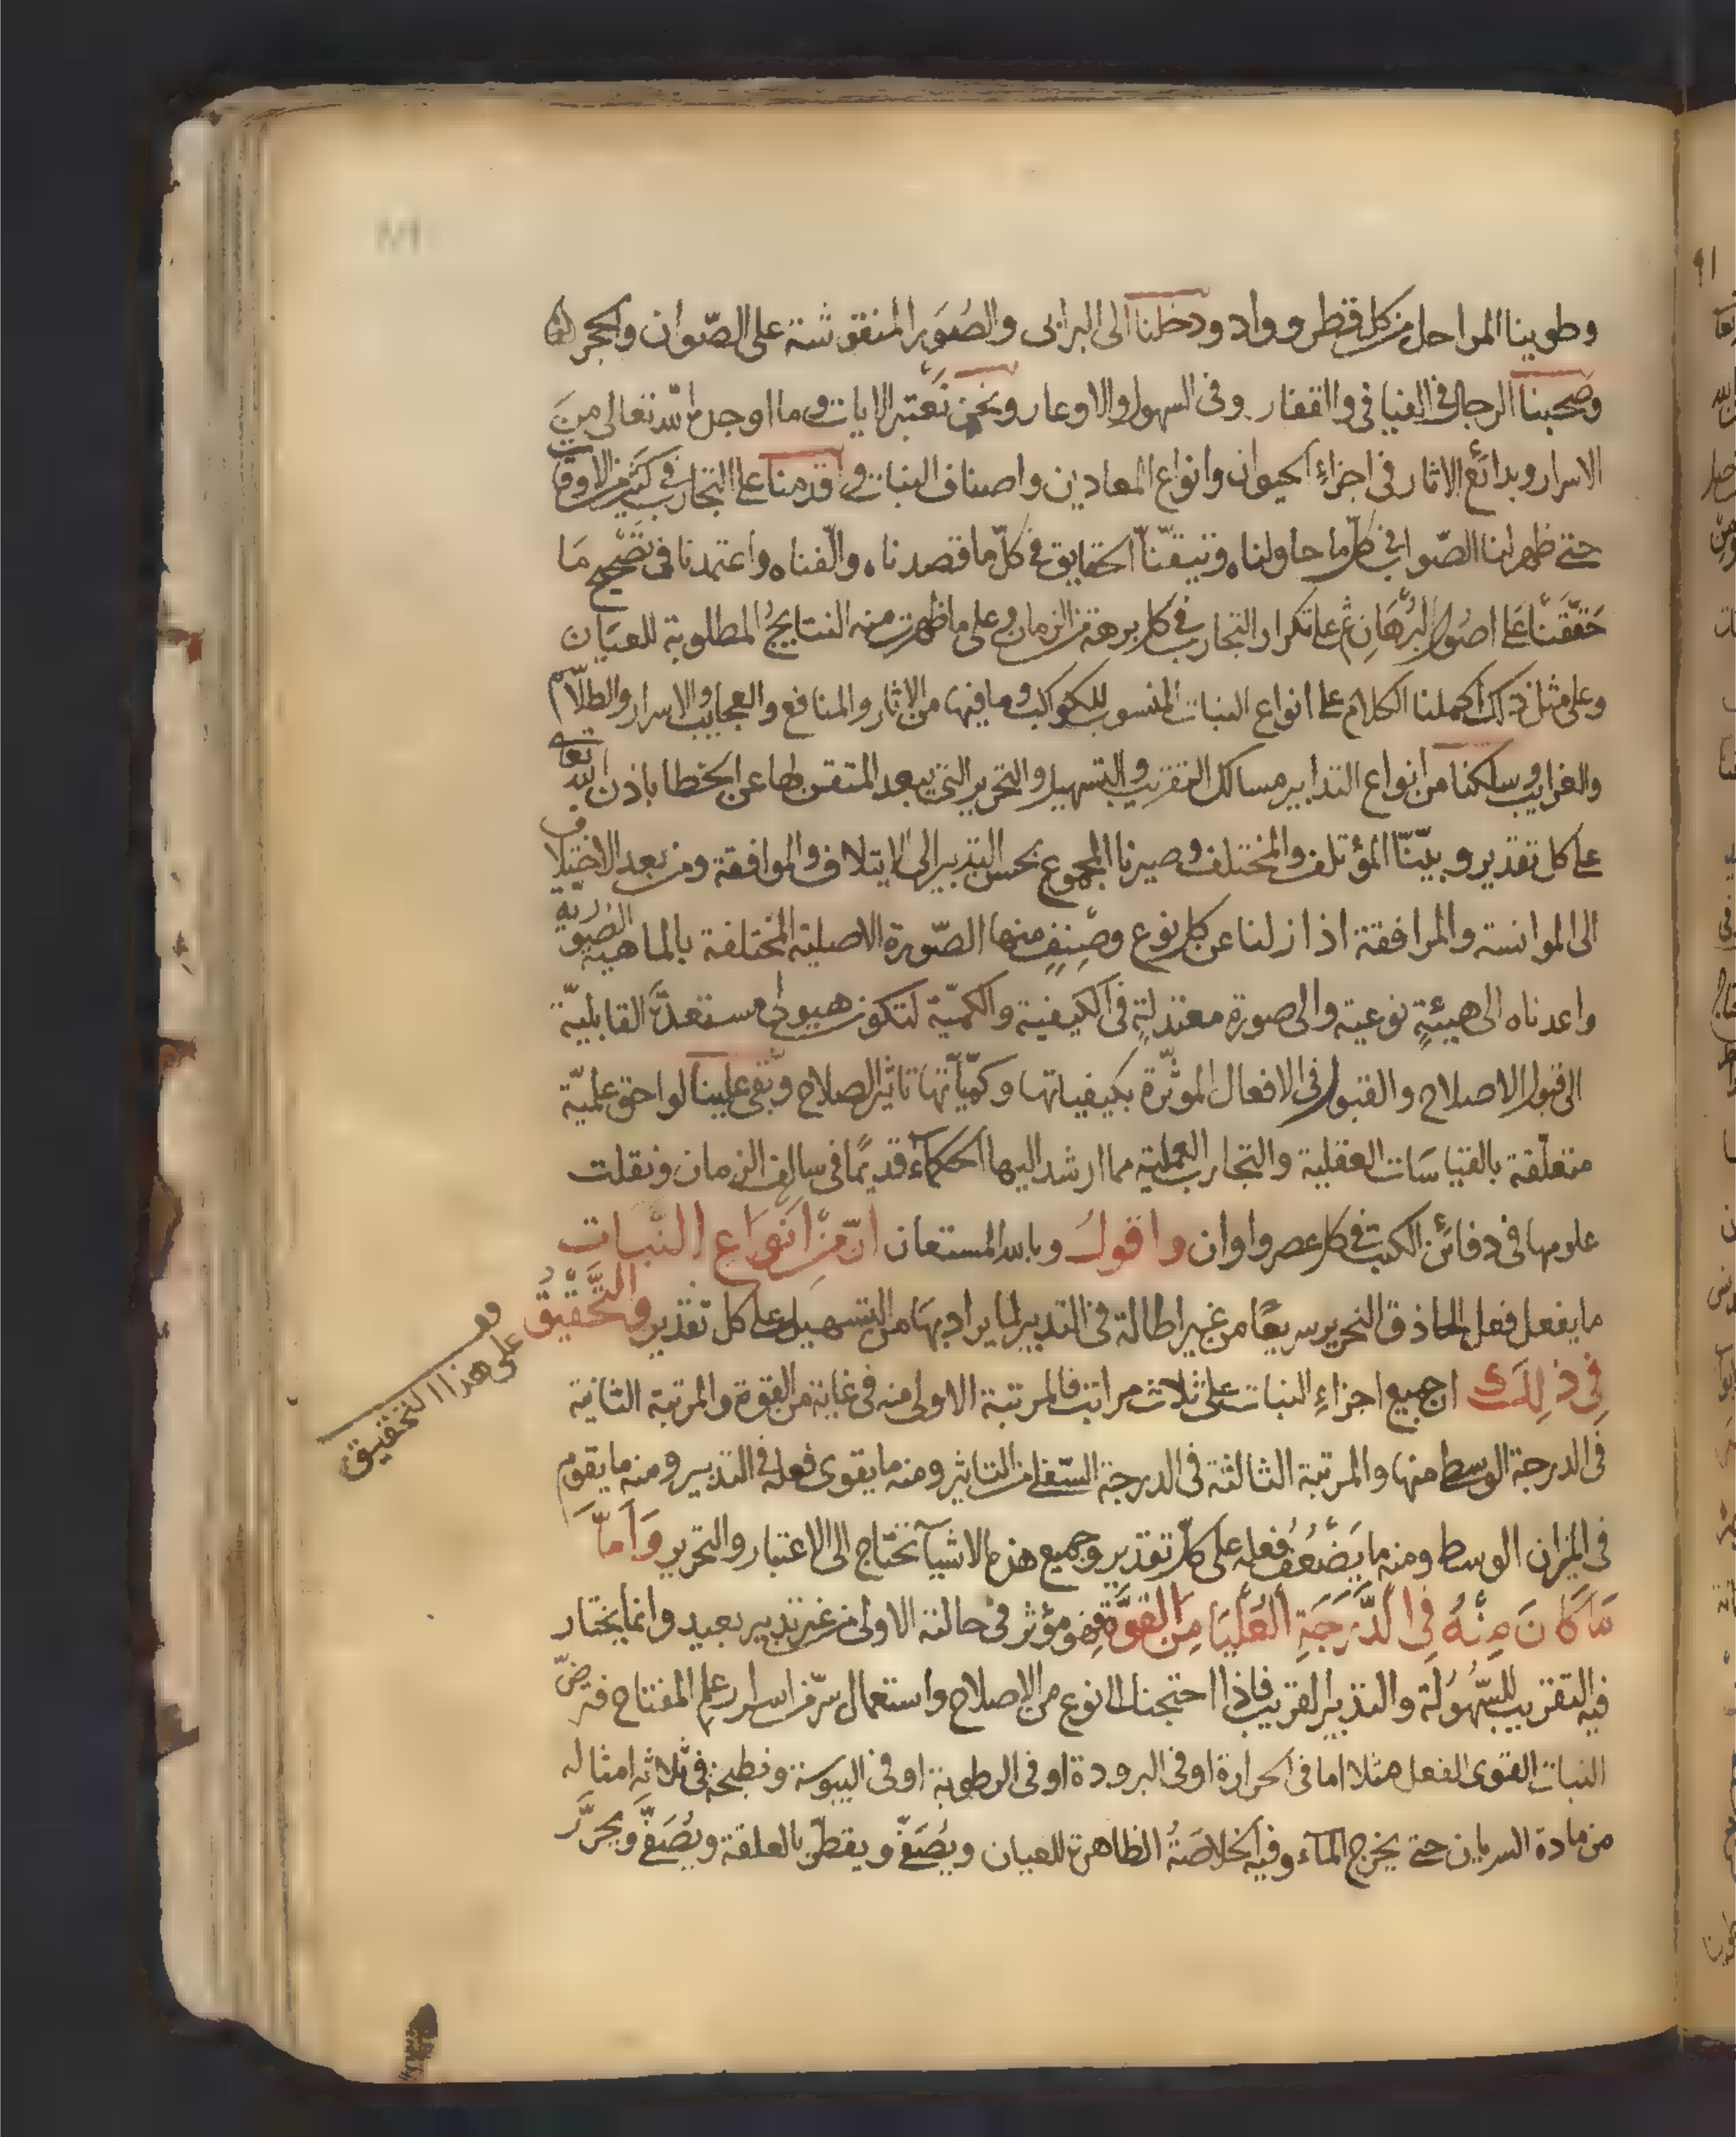 وطوينا المراحل من كل قطر وواد ودخلنا الى البرابى والصُوَر المنقوشة على الصّوان والحجر
وصَحبنا الرجال فى الفيافى والقفار وفى السهول والاوعار ونحن نَعتبر الايات وما اوجد الله تعالى منَ
الاسرار وبدائع الاثار فى اجزاءِ الحيوان وانواع المعادن واصناف النبات واقدمنا على التجارب فى كثير من الاوقات
حتى ظهر لنا الصّواب فى كلّ ما حاولناه وتيقّنّا الحقايق فى كلّ ما قصدناه والّفناه واعتمدنا فى تصْحيح مَا
حَقّقنا عَلى اصُول البُرهَانِ ثم على تكرار التجارب فى كل برهة من الزمان وعلى ما ظهرت منه النتايجُ المطلوبة للعيَان
وعلى مثل ذلك اكملنا الكلام على انواع النبات المنسوب للكواكب وما فيها من الاثار والمنافع والعجايب والاسرار والطلّاسم
والغرايب وسلكنا من انواع التدابير مسالك التقريب والتسهيل والتحرير التى يبعد المتقن لها عن الخطا باذن الله تعالى
على كل تقدير وبيّنّا المؤتلف والمختلف وصيرنا المجموع بحسن التدبير الى الايتلاف والموافقة ومن بعد الاختلاف
الى الموانسة والمرافقة اذا زلنا عن كل نوع وصِنفٍ منها الصّورة الاصلية المختلفة بالماهية الصورية
واعدناه الى هيئةٍ نوعية والى صورة معتدلةٍ فى الكيفية والكميّة لتكون هيولى مستعدّة القابليّة
الى قبول الاصلاح والقبول فى الافعال الموثّرة بكيفياتها وكميّاتها تاثير الصلاح وبقى علينا لواحق علميّة
متعلّقة بالقياسَات العقلية والتجارب العملية مما ارشد اليها الحكماء قديمًا فى سالف الزمان ونقلت
علومها فى دفائن الكتب فى كل عصر واوان واقولُ وبالله المستعان انّ مِنْ انَوَاعِ النّبات
ما يفعل فعل الحاذق النحرير سريعًا من غير اطالة فى التدبير لما يراد بهَا من التسهيل على كل تقدير والتَّحْقيْقُ
فِى ذلِكَ ان جميع اجزاءِ النبات على ثلاث مراتب فالمرتبة الاولى منه فى غاية من القوة والمرتبة الثانية
فى الدرجة الوسط منها والمرتبة الثالثة فى الدرجة السّفلى من التاثير ومنه ما يقوى فعله فى التدبير ومنه ما يقوم
فى الميزان الوسط ومنه ما يَضْعُفُ فعله على كلّ تقدير وجميع هذه الاشيآ تحتاج الى الاعتبار والتحرير وَاَمّا
مَا كَا نَ مِنْهُ فِى الدَّرَجَةِ العُلْيَا مِنَ القوَّة فهو مؤثر فى حالته الاولى من غير تدبير بعيد وانما يختار
فيه التقريب للسّهُولة والتدبير القريب فاذا احتجنا الى نوع من الاصلاح واستعمال سرّ من اسرار علم المفتاح فنرضّ
النبات القوى الفعل مثلا اما فى الحرارة او فى البرودة او فى الرطوبة او فى اليبوسة ونطبخه فى ثلاثة امثاله
من مادة السريان حتى يخرج المآء وفيه الخلاصَةُ الظاهرة للعيان ويُصَفّى ويقطّر بالعلقة ويُصَفّى ويحرَّر
قف
على هذا التحقيق